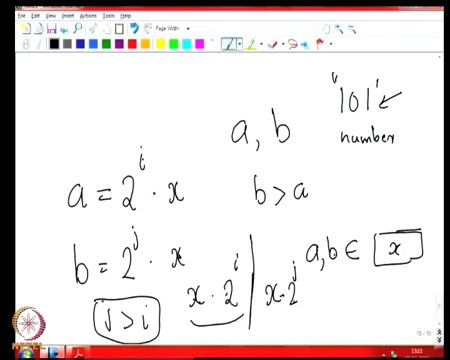 File Edit View Insert Actions Tools Help
Page Width
"101"
a, b
number
a = 2^i · x
b > a
b = 2^j · x
a, b ∈ x
j > i
x · 2^i | x · 2^j